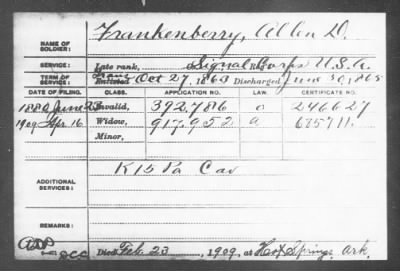 Frankenberry, Allen D.
NAME OF SOLDIER:
SERVICE: Late rank, Signal Corps U.S.A.
TERM OF SERVICE: Enlisted Trans Oct 27, 1863 Discharged June 30, 1865
DATE OF FILING. CLASS. APPLICATION NO. LAW. CERTIFICATE NO.
1880 June 23 Invalid, 392,786 246627
1909 Apr. 16 Widow, 917,952 a 675711.
Minor,
K 15 Pa Cav
ADDITIONAL SERVICES:
REMARKS:
Died Feb. 23, 1909, at Hot Springs, Ark.